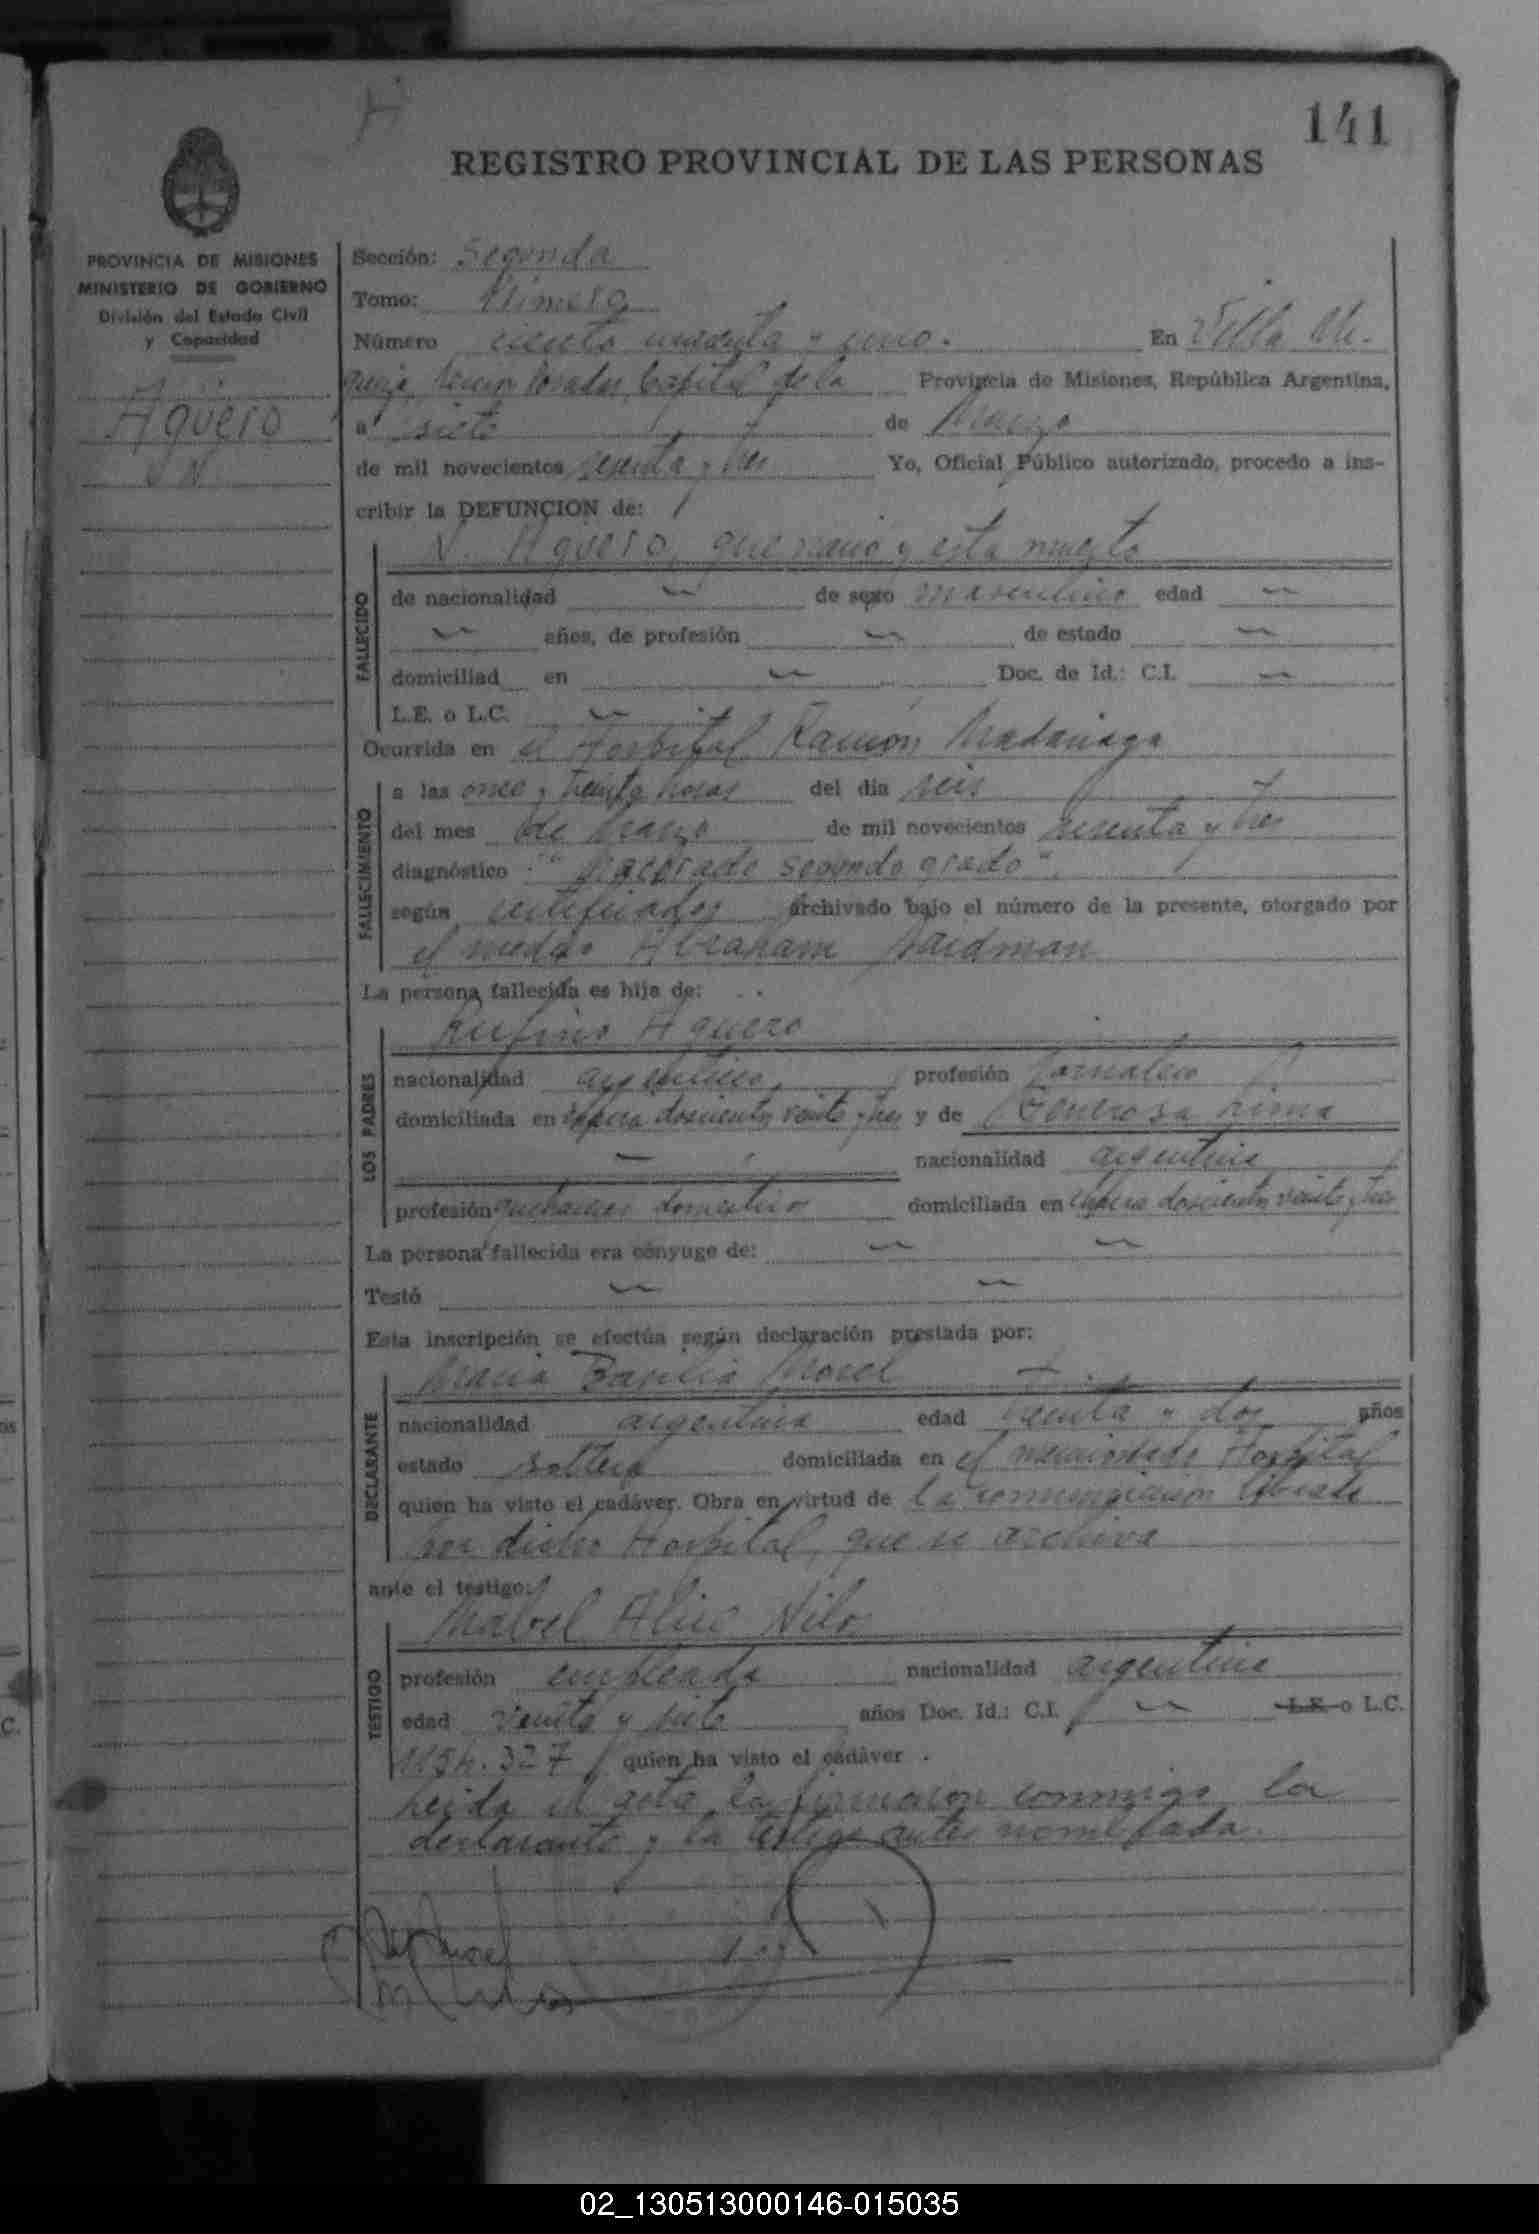 141
REGISTRO PROVINCIAL DE LAS PERSONAS
PROVINCIA DE MISIONES
MINISTERIO DE GOBIERNO
División del Estado Civil
y Capacidad
Agüero
N.
Sección: Segunda
Tomo: Primero
Número ciento cuarenta y uno. En Villa Ur-
quiza, Sección Posadas, Capital de la Provincia de Misiones, República Argentina,
a siete de Marzo
de mil novecientos sesenta y tres Yo, Oficial Público autorizado, procedo a ins-
cribir la DEFUNCION de:
N. Agüero, que nació y esta muerto
FALLECIDO
de nacionalidad de sexo masculino edad
años, de profesión de estado
domiciliad en Doc. de Id.: C.I.
L.E. o L.C.
Ocurrida en el Hospital Ramón Madariaga
FALLECIMIENTO
a las once y treinta horas del dia seis
del mes de Marzo de mil novecientos sesenta y tres
diagnóstico : "Macerado segundo grado".
según certificados archivado bajo el número de la presente, otorgado por
el medico Abraham
La persona fallecida es hija de:
Rufino Aguero
LOS PADRES
nacionalidad argentino, profesión Jornalero
domiciliada en doscientos veinte y tres y de Generosa Lima
nacionalidad argentina
profesión quehaceres domestico domiciliada en doscientos veinte y tres
La persona fallecida era cónyuge de:
Testó
Esta inscripción se efectúa según declaración prestada por:
Maria Basilia Morel
DECLARANTE
nacionalidad argentina edad treinta y dos años
estado soltera domiciliada en el mencionado Hospital
quien ha visto el cadáver. Obra en virtud de la comunicacion librada
por dicho Hospital, que se archiva
ante el testigo:
Mabel Alice Nilos
TESTIGO
profesión empleada nacionalidad argentina
edad veinte y siete años Doc. Id.: C.I. L.E. o L.C.
1154.327 quien ha visto el cadáver .
Leida el acta la firmaron conmigo la
declarante y la testigo antes nombrada.
02_130513000146-015035